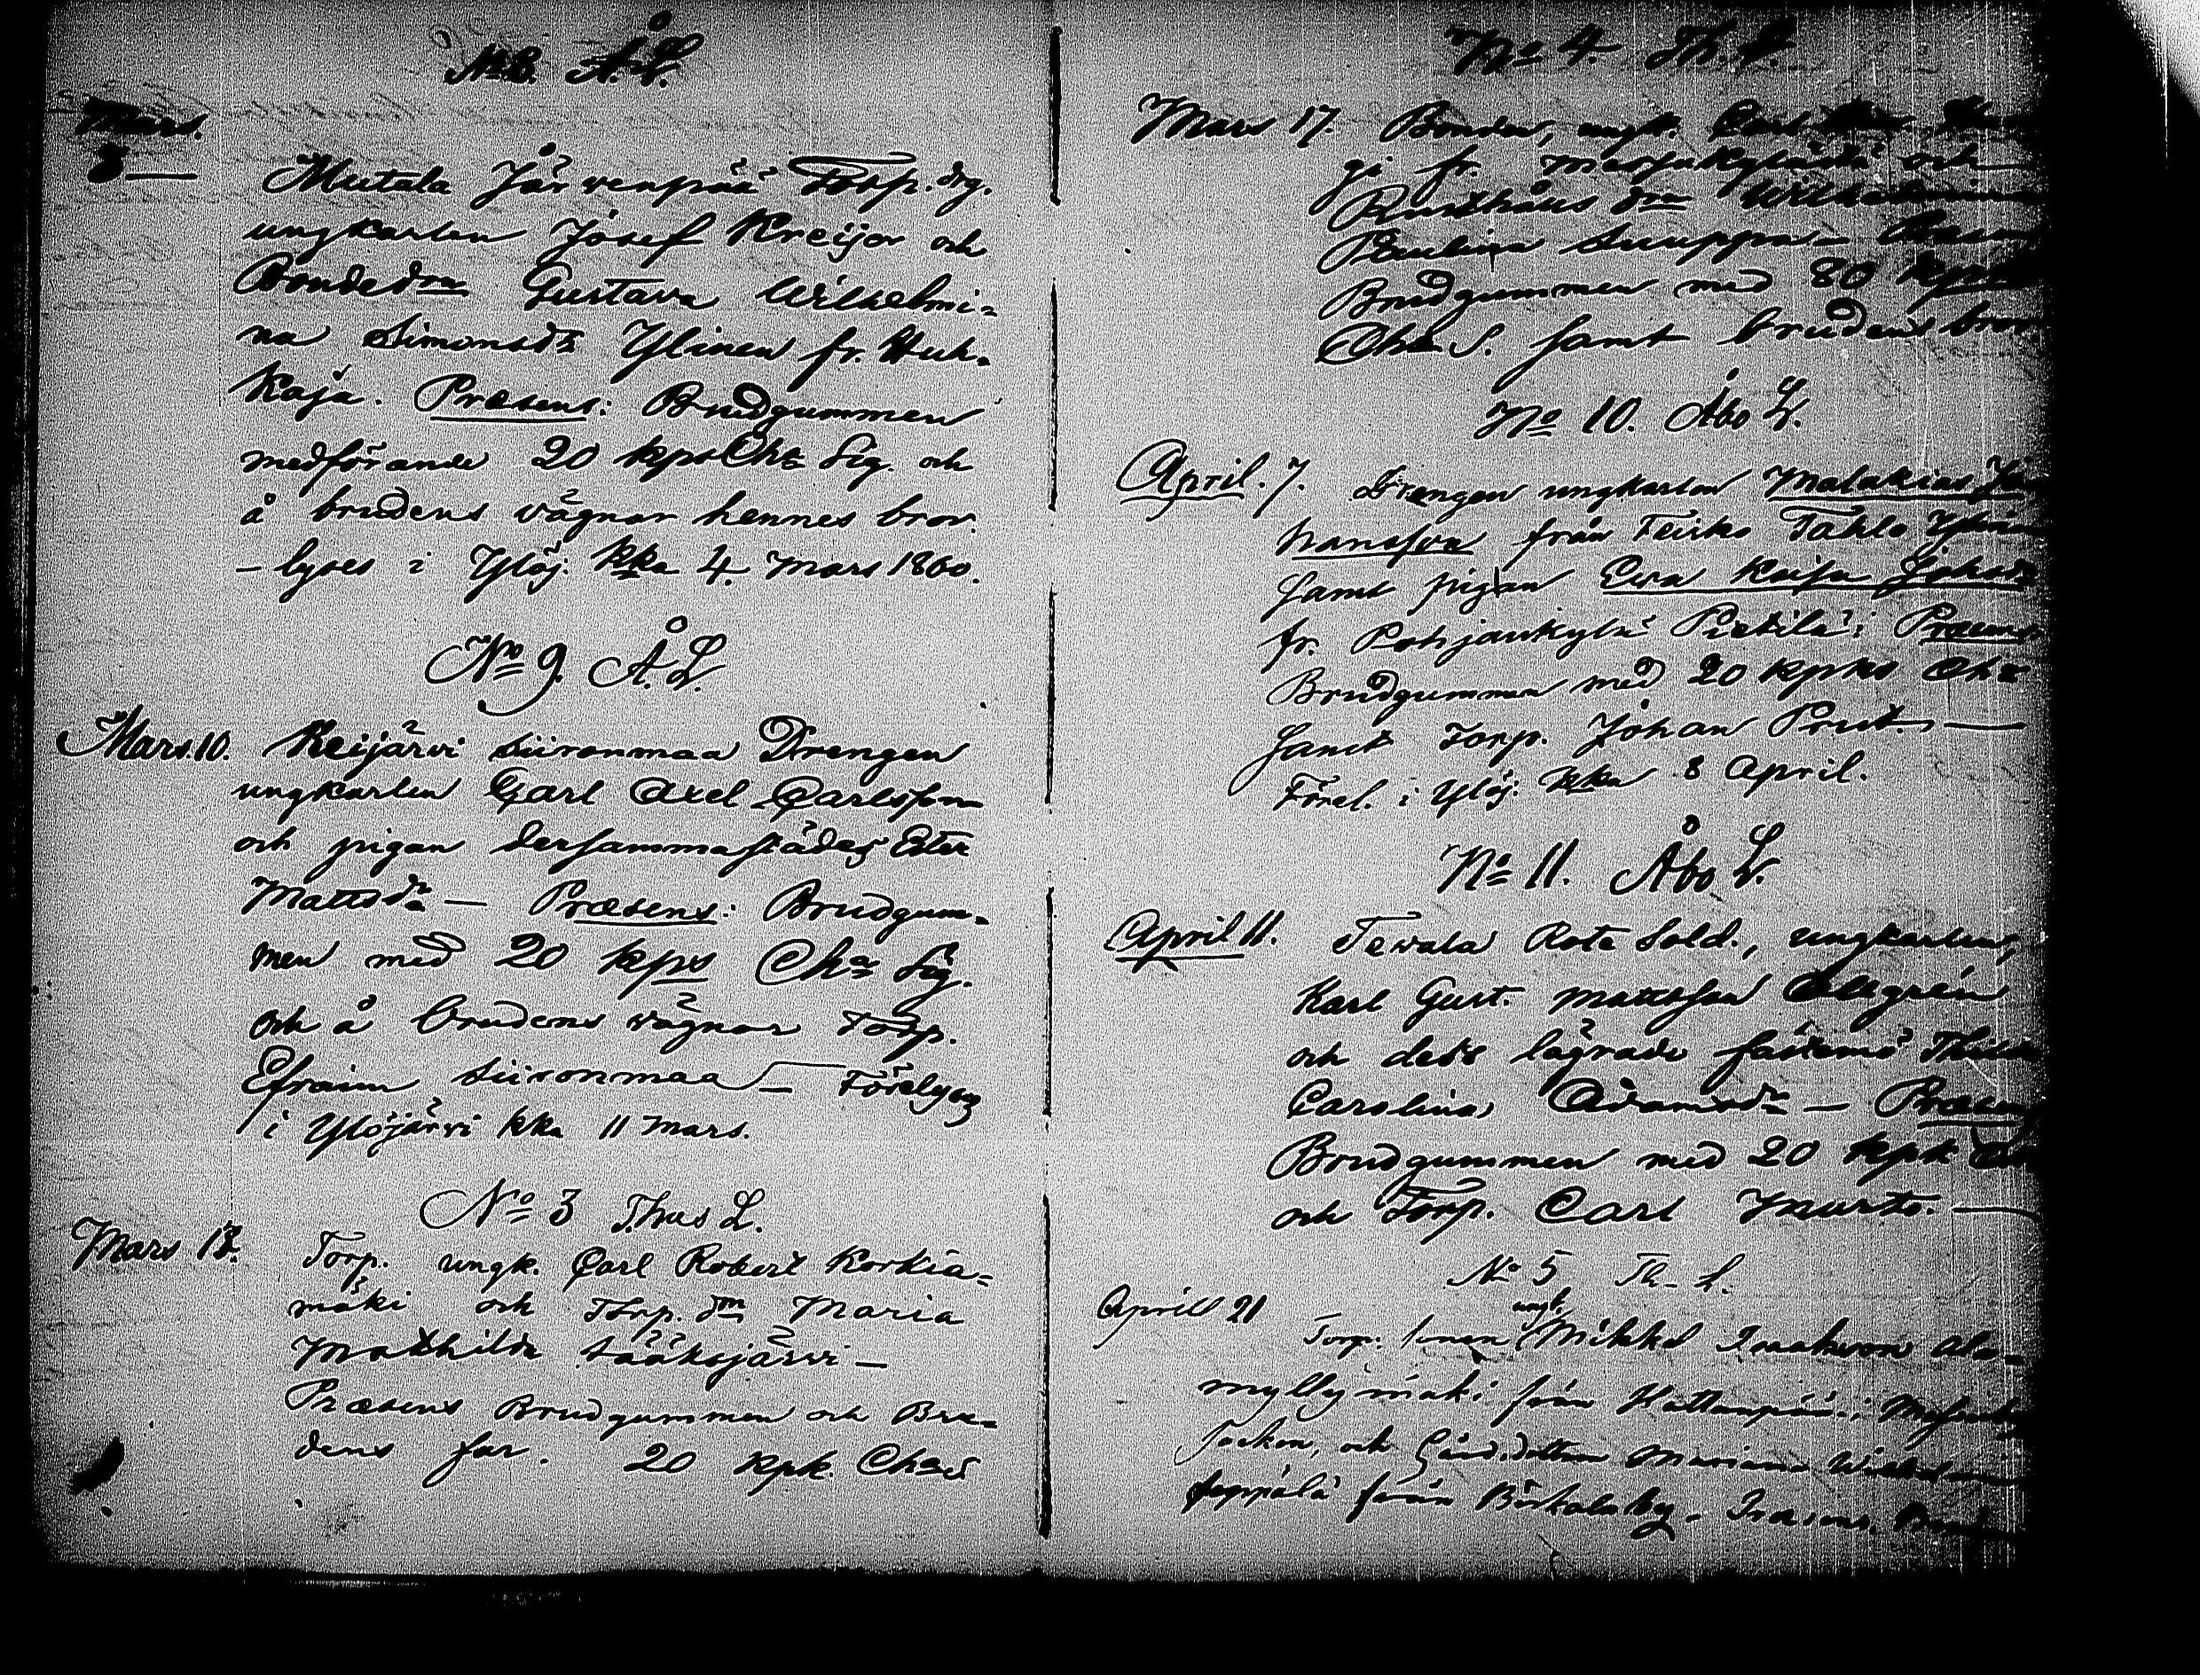 No 8. Å.L.
Mars.
8 — Mutala Järvenpää Torp. dr.
ungkarlen Josef Kreijor och
Bondedrn Gustava Wilhelmi-
na Simonsdr Ylinen fr. Huh-
kaja. Præsens: Brudgummen
medförande 20 kps Cha Sig. och
å brudens vägnar hennes bror.
– lyses i Ylöj. kka 4. Mars 1860.
No 9. Å.L.
Mars.10. Keijärvi Siironmaa Drengen
ungkarlen Carl Axel Carlsson
och pigan dersammastädes Ester
Mattsdr — Præsens: Brudgum-
men med 20 kps Cha Sig.
och å brudens vägnar Torp.
Efraim Siironmaa — Förelyses
i Ylöjärvi kka 11 Mars.
No 3 Thus L.
Mars 17. Torp. ungk. Carl Robert Korkia-
mäki och Torp. drn Maria
Mathilda Sääksjärvi —
Præsens Brudgummen och Bru-
dens far. 20 kpk. Cha S
No 4. Th. L.
Mars 17. Bonden, ungk. Carl
gi fr. och
Rusthålls drn Wilhelmina
Paulina Suuppa —
Brudgummen med 80 kpk
Cha S. samt brudens bror
No 10. Åbo L.
April. 7. Drengen ungkarlen Malakias Jo
hansson från Teisko Tahlo
samt pigan Eva Kaisa Johsdr
fr. Pohjankylä Pietilä: Præsens
Brudgummen med 20 kpks Cha
samt Torp. Johan Prut. —
Förel. i Ylöj. kka 8 April.
No 11. Åbo L.
April 11. Tevala Rote Sold., ungkarlen,
Karl Gust. Mattsson
och dess lägrade fästemö Thilda
Carolina Adamsdr — Præsens
Brudgummen med 20 kpk Cha
och Torp. Carl Murto. —
No 5 Th. L.
ungk.
April 21 Torp. sonen Mikkel Isaksson Ala-
myllymäki från Hattanpää i
socken, och Gård.dottern Mariana Wilhelmina
Seppälä från Birkala by. Præsens.